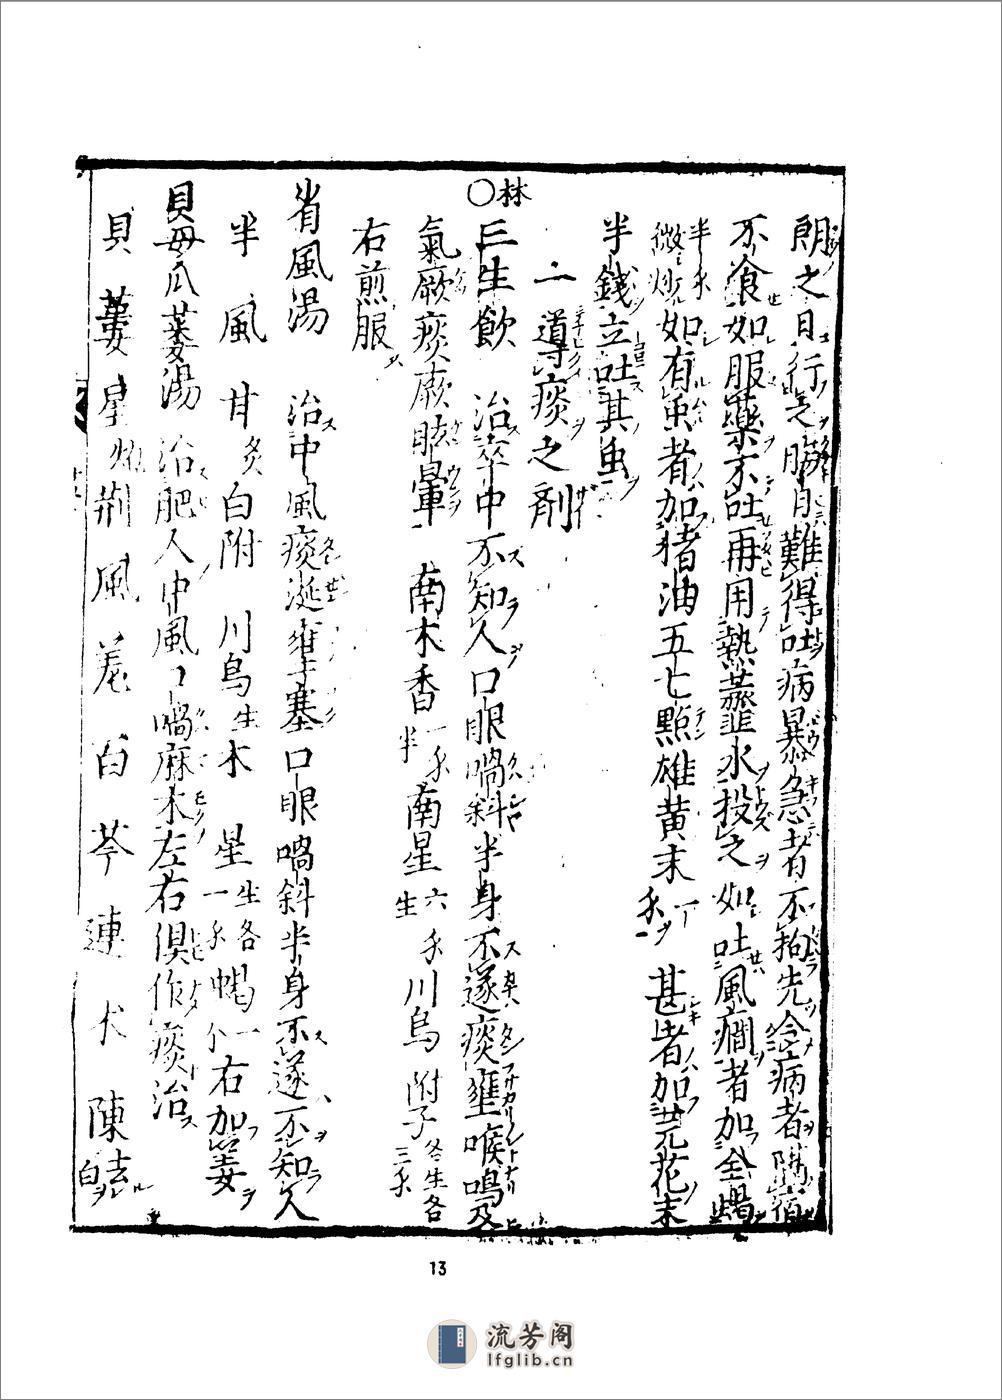 朗之日行之勝月難得吐病暴急者不拘先令病者隔宿
不食如服藥不吐再用熱虀水投之如吐風癇者加全蝎
半分微炒如有虫者加猪油五七點雄黄末一分甚者加芫花末
半錢立吐其虫
二導痰之剤
〇林
三生飲 治卒中不知人口眼喎斜半身不遂痰壅喉鳴及
氣厥痰厥眩暈 南木香一分半 南星六分生 川烏 附子各生各三分
右煎服
省風湯 治中風痰涎壅塞口眼喎斜半身不遂不知人
半 風 甘炙 白附 川烏生 木 星生各一分 蝎一个 右加姜
貝母瓜蔞湯 治肥人中風口喎麻木左右俱作痰治
貝 蔞 星炮 荆 風 羗 白 芩 連 朮 陳去白
13
流芳阁
lfglib.cn